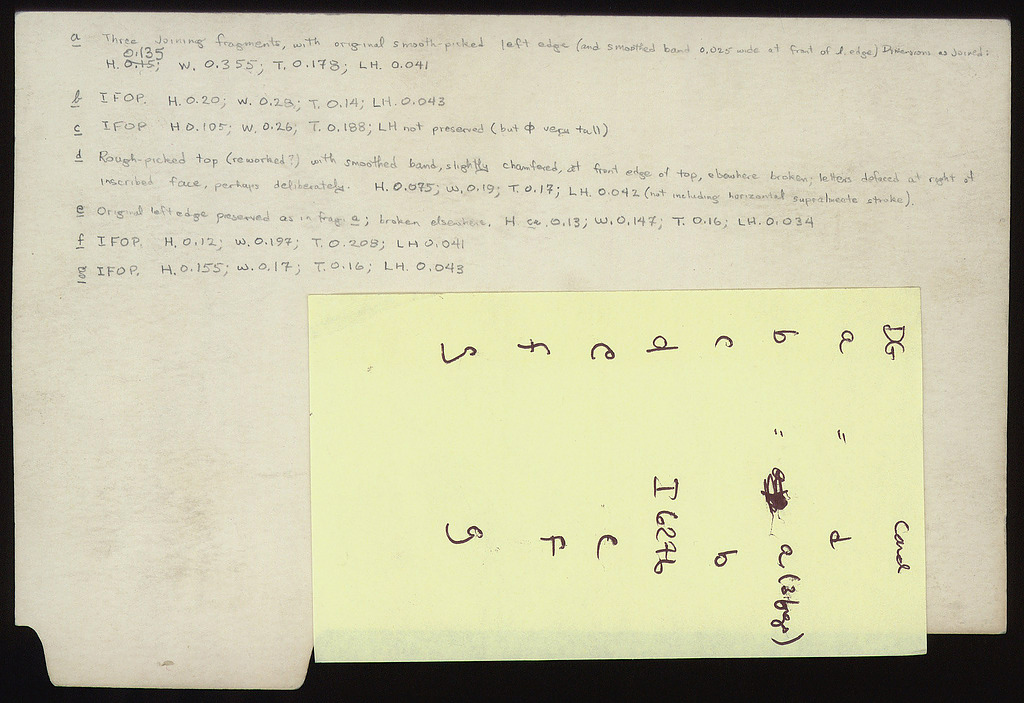 a Three joining fragments, with original smooth-picked left edge (and smoothed band 0.025 wide at front of l. edge) Dimensions as joined:
0.135
H. 0.15; W. 0.355; T. 0.178; LH. 0.041
b IFOP. H. 0.20; W. 0.28; T. 0.14; LH. 0.043
c IFOP H 0.105; W. 0.26; T. 0.188; LH not preserved (but Φ very tall)
d Rough-picked top (reworked?) with smoothed band, slightly chamfered, at front edge of top, elsewhere broken; letters defaced at right of
inscribed face, perhaps deliberately. H. 0.075; W. 0.19; T. 0.17; LH. 0.042 (not including horizontal supralineate stroke).
e Original left edge preserved as in frag. a; broken elsewhere. H ca. 0.13; W. 0.147; T. 0.16; LH. 0.034
f IFOP. H. 0.12; W. 0.197; T. 0.208; LH 0.041
g IFOP. H. 0.155; W. 0.17; T. 0.16; LH. 0.043
DG Card
a = d
b = a (3 frags)
c b
d I 6276
e e
f f
g g